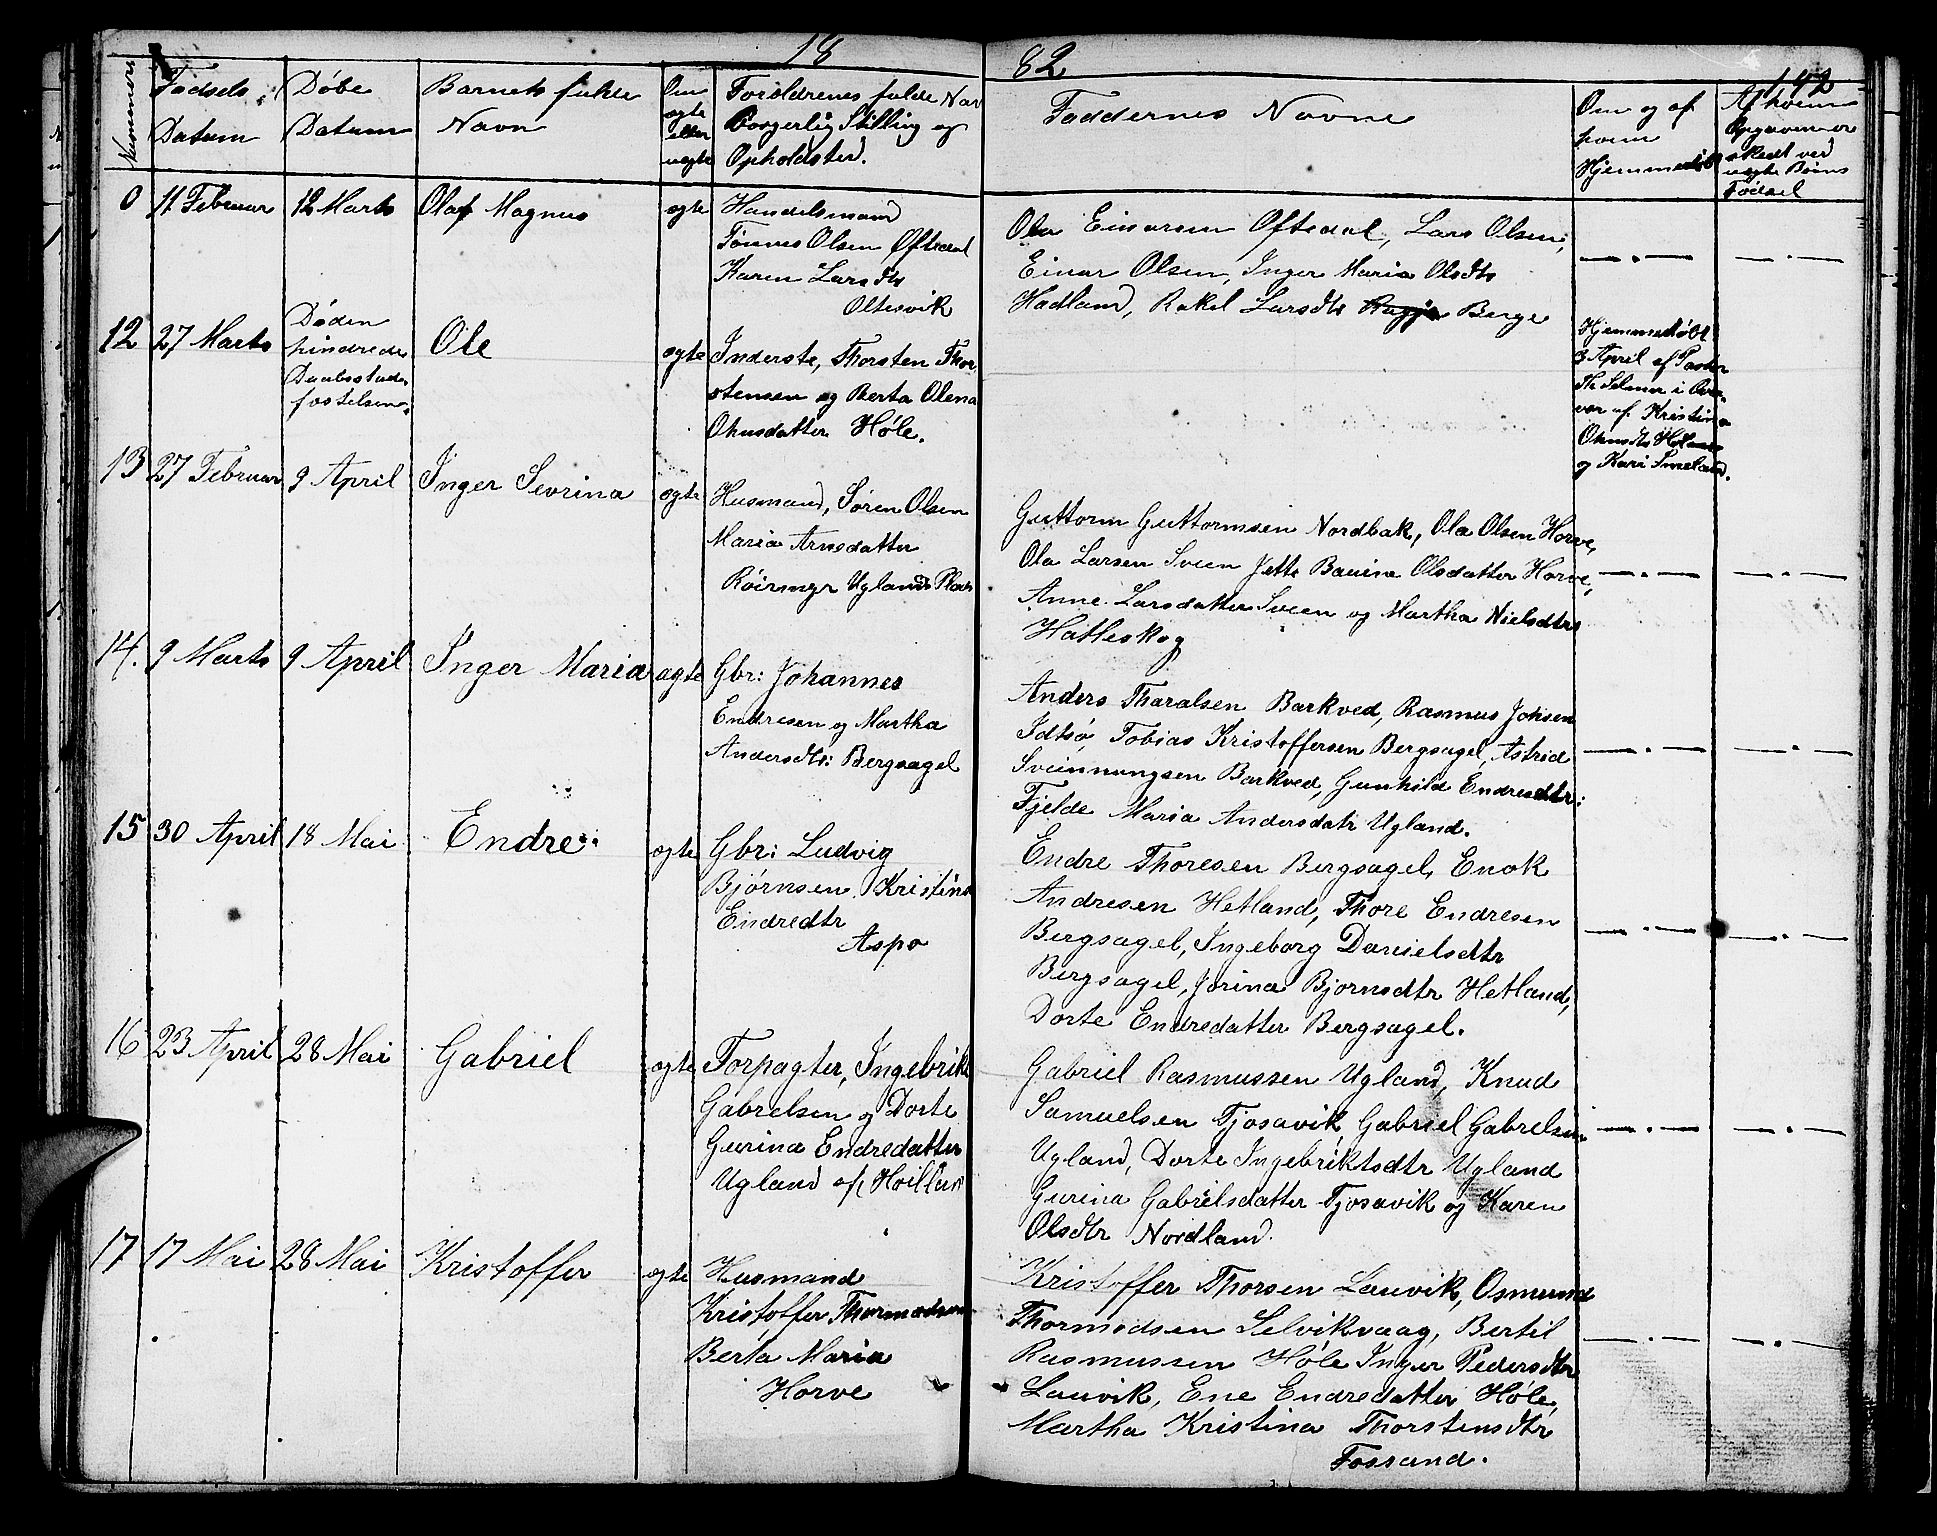 18
82
142
Nummer
Fødsels
Datum
Døbe
Datum
Barnets fulde
Navn
Om
ægte
eller
uegte
Forældrenes fulde Nav
Borgerlig Stilling og
Opholdsted.
Faddernes Navne
Om og af
hvem
Hjemmedøbt
Af hvem
Opgaven er
skedt ved
uegte Børns
Fødsel
0
11 Februar
12 Marts
Olaf Magnus
ægte
Handelsmand
Tønnes Olsen Øftedal
Karen Larsdtr
Oltesvik
Ola Einarsen Oftedal, Lars Olsen,
Einar Olsen, Inger Maria Olsdtr
Hadland, Rakel Larsdtr Berge
12
27 Marts
Døden
hindrede
Daabsstade
fæstelsen.
Ole
ægte
Inderste, Thorsten Thor
stensen og Berta Olena
Høle.
Hjemmedøbt
3 April af Pastor
i
af Kristina
og Kari
13
27 Februar
9 April
Inger Sevrina
ægte
Husmand, Søren Olsen
Maria Arnedatter
Røirmyr Uglands Plads
Guttorm Guttormsen Nordbak, Ola Olsen Horve,
Ola Larsen Sveen Jette Bauine Olsdatter Horve,
Anne Larsdatter Sveen og Martha Nielsdtr
Hatleskog
14.
9 Marts
9 April
Inger Maria
ægte
Gbr: Johannes
Endresen og Martha
Andersdtr: Bergsagel
Anders Tharalsen Barkved, Rasmus Johsen
Idtsø, Tobias Kristoffersen Bergsagel, Astrid
Sveinnungsen Barkved, Gunhild Endresdtr:
Fjelde Maria Andersdatr Ugland.
15
30 April
18 Mai
Endre
ægte
Gbr: Ludvig
Bjørnsen, Kristina
Endredtr
Aspø
Endre Thoresen Bergsagel, Enok
Andresen Hetland, Thore Endresen
Bergsagel, Ingeborg Danielsdtr
Bergsagel, Jorina Bjornsdtr Hetland,
Dorte Endredatter Bergsagel.
16
23 April
28 Mai
Gabriel
ægte
Forpagter, Ingebrikt
Gabrelsen og Dorte
Gurina Endredatter
Ugland af Høilland
Gabriel Rasmussen Ugland, Knud
Samuelsen Tjosavik Gabriel Gabrelsen
Ugland, Dorte Ingebriktsdtr Ugland
Gurina Gabrielsdatter Tjosavik og Karen
Olsdtr Nordland.
17
17 Mai
28 Mai
Kristoffer
ægte
Husmand
Kristoffer Thormodsen
Berta Maria
Horve
Kristoffer Thorsen Lauvik, Osmund
Thormodsen Selvikvaag, Bertil
Rasmussen Høle Inger Pedersdtr
Lauvik, Ene Endredatter Høle,
Martha Kristina Thorstensdtr
Fossand.